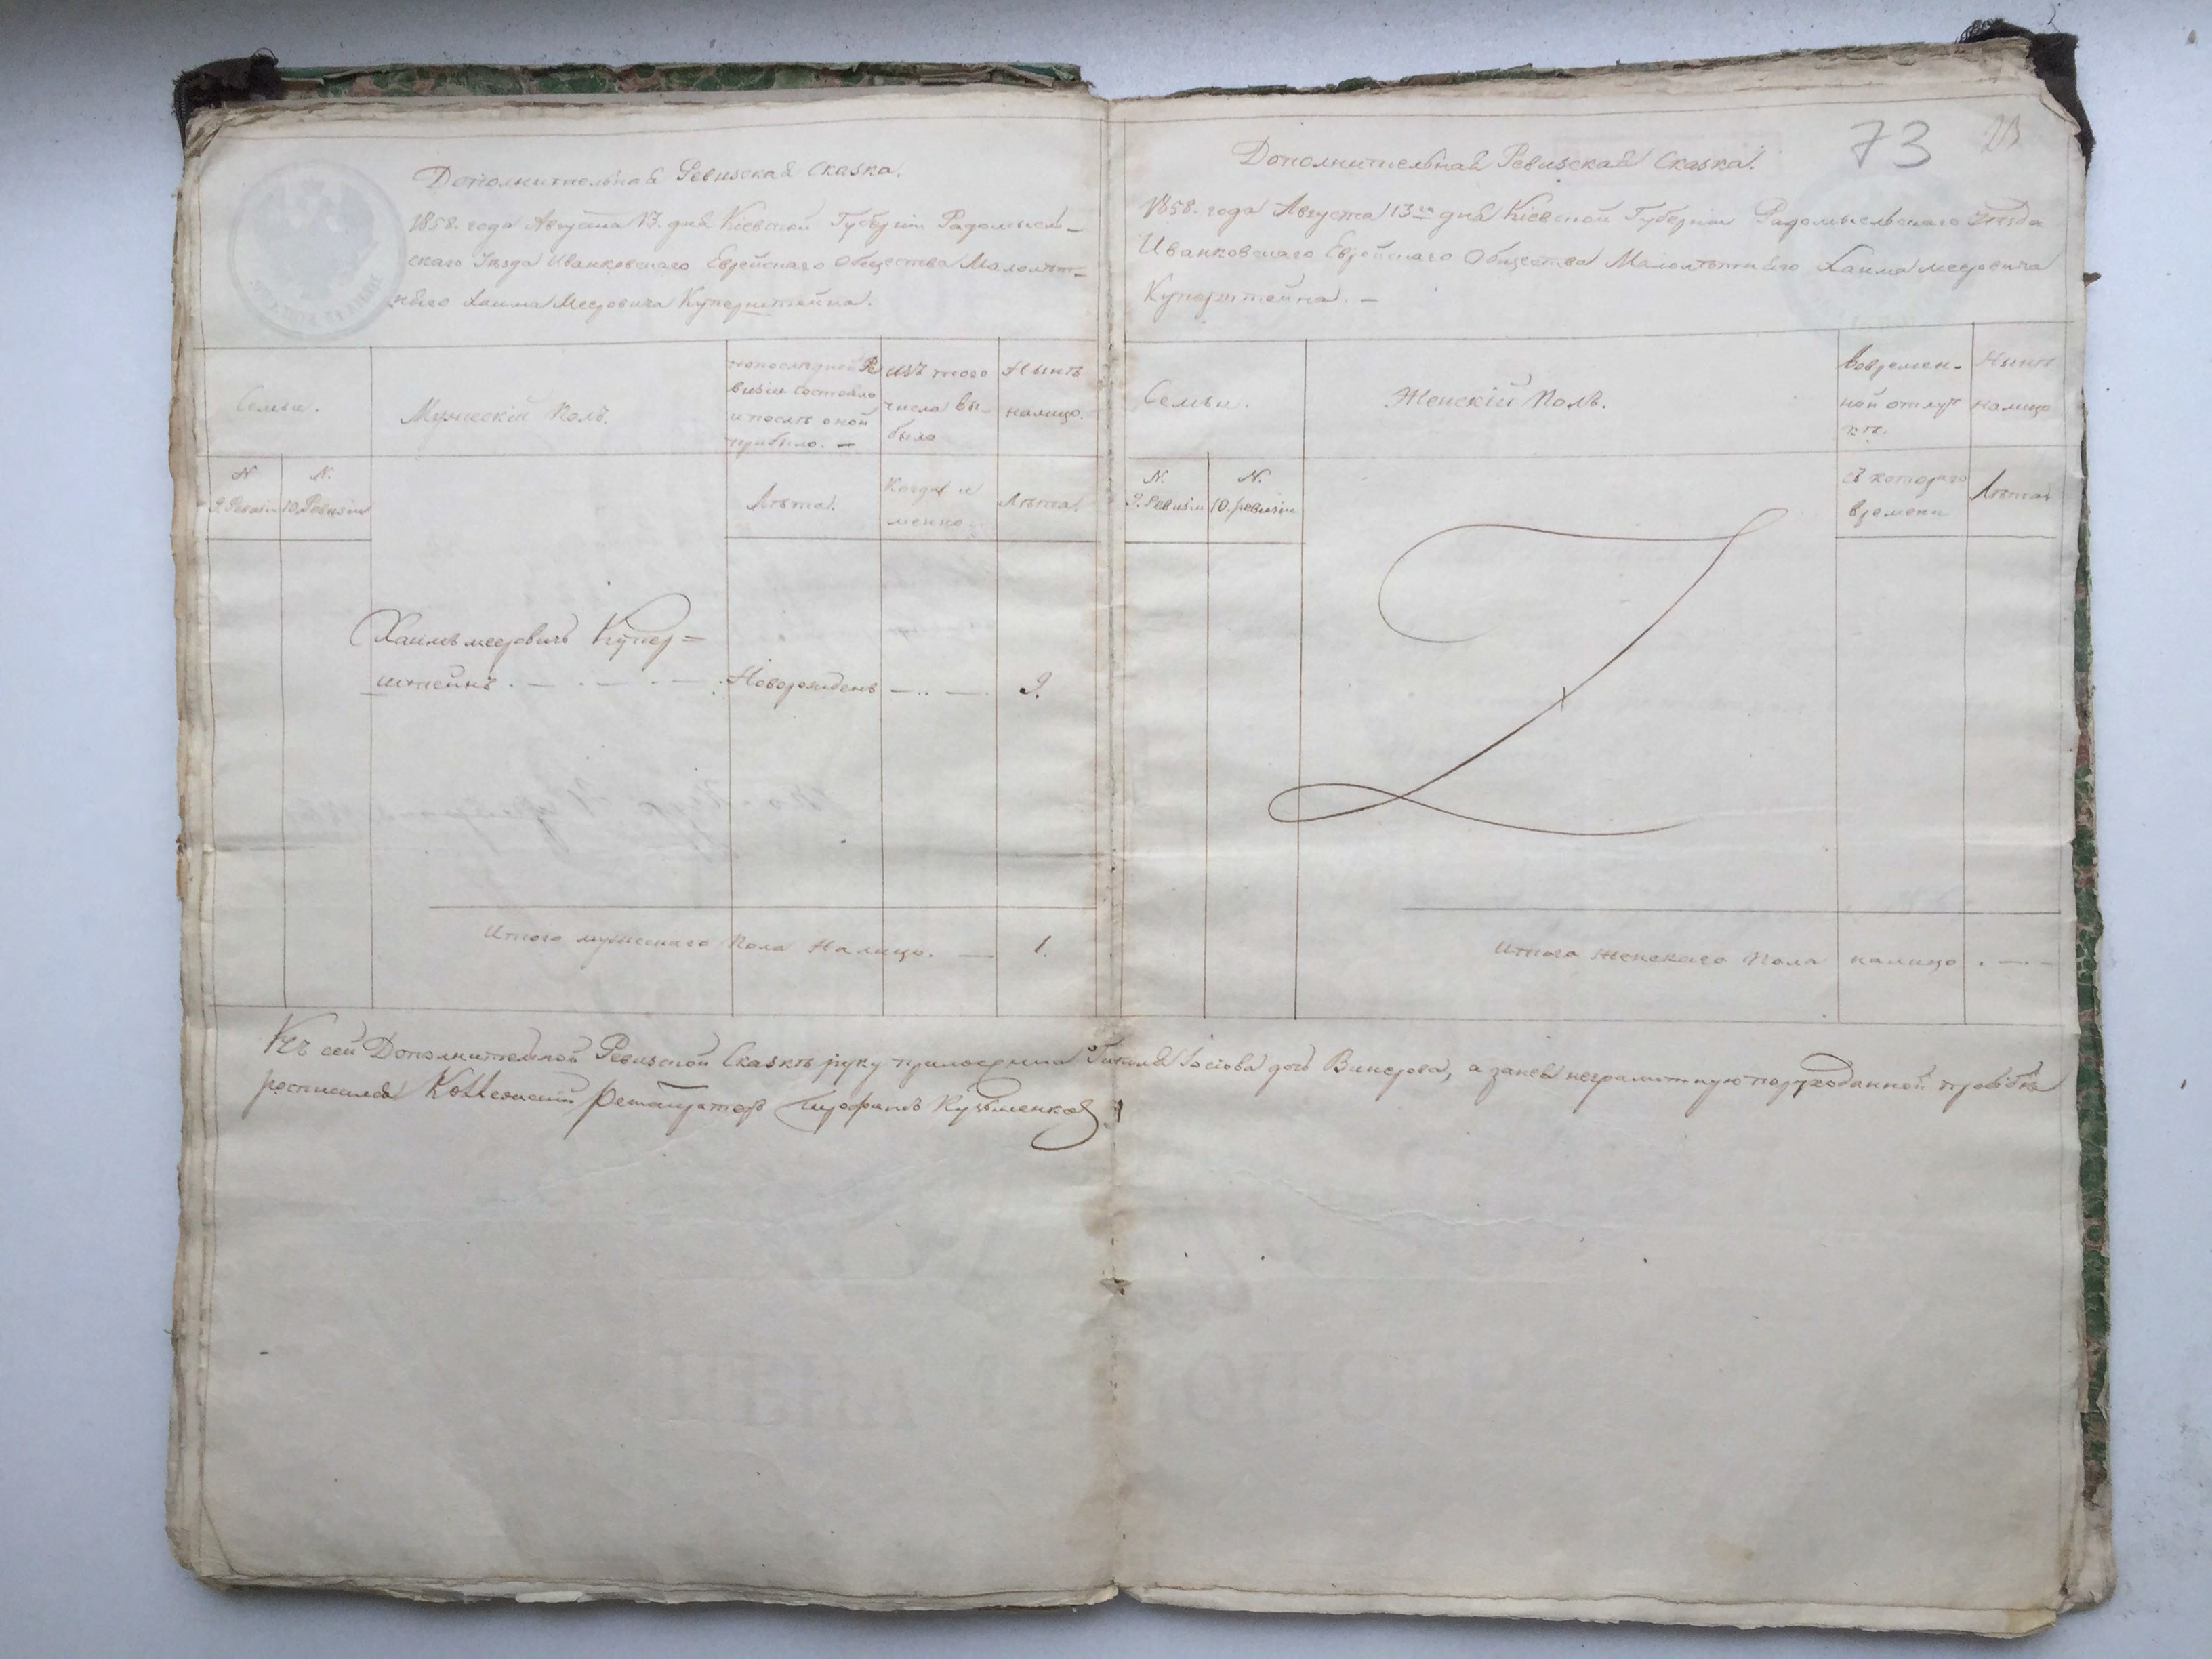 Дополнительная Ревизская Сказка.
1858. года Августа 13. дня Кіевской Губерніи Радомысль-
скаго Уезда Иванковскаго Еврейскаго Общества Малолѣт-
няго Хаима Меэровича Куперштейна.
Семьи.
Мужескій Полъ.
попоследней Ре
визіи состояло
и послѣ оной
прибыло. —
изъ того
числа вы-
было
Нынѣ
налицо.
N
9. Ревизіи
N.
10. Ревизіи
Лѣта.
Когда и
менно
Лѣта.
Хаимъ меэровичъ Купер=
штейнъ. — . — . — .
Новорожденъ — .. — .
9.
Итого мужескаго Пола Налицо. —
1.
73
Дополнительная Ревизская Сказка.
1858. года Августа 13го дня Кіевской Губерніи Радомысльскаго Уѣзда
Иванковскаго Еврейскаго Общества Малолѣтняго Хаима меэровича
Куперштейна. —
Семьи.
Женскій Полъ.
Вовремен-
ной отлуч
кѣ.
Нынѣ
налицо
N.
9. Ревизіи
N.
10. ревизіи
съ котораго
времени
Лѣта
Итого Женскаго Пола налицо . — . —
Къ сей Дополнительной Ревизской Сказкѣ руку приложила дочь а за нея неграмотную по рукоданной прозьбѣ
росписался Кузьменков